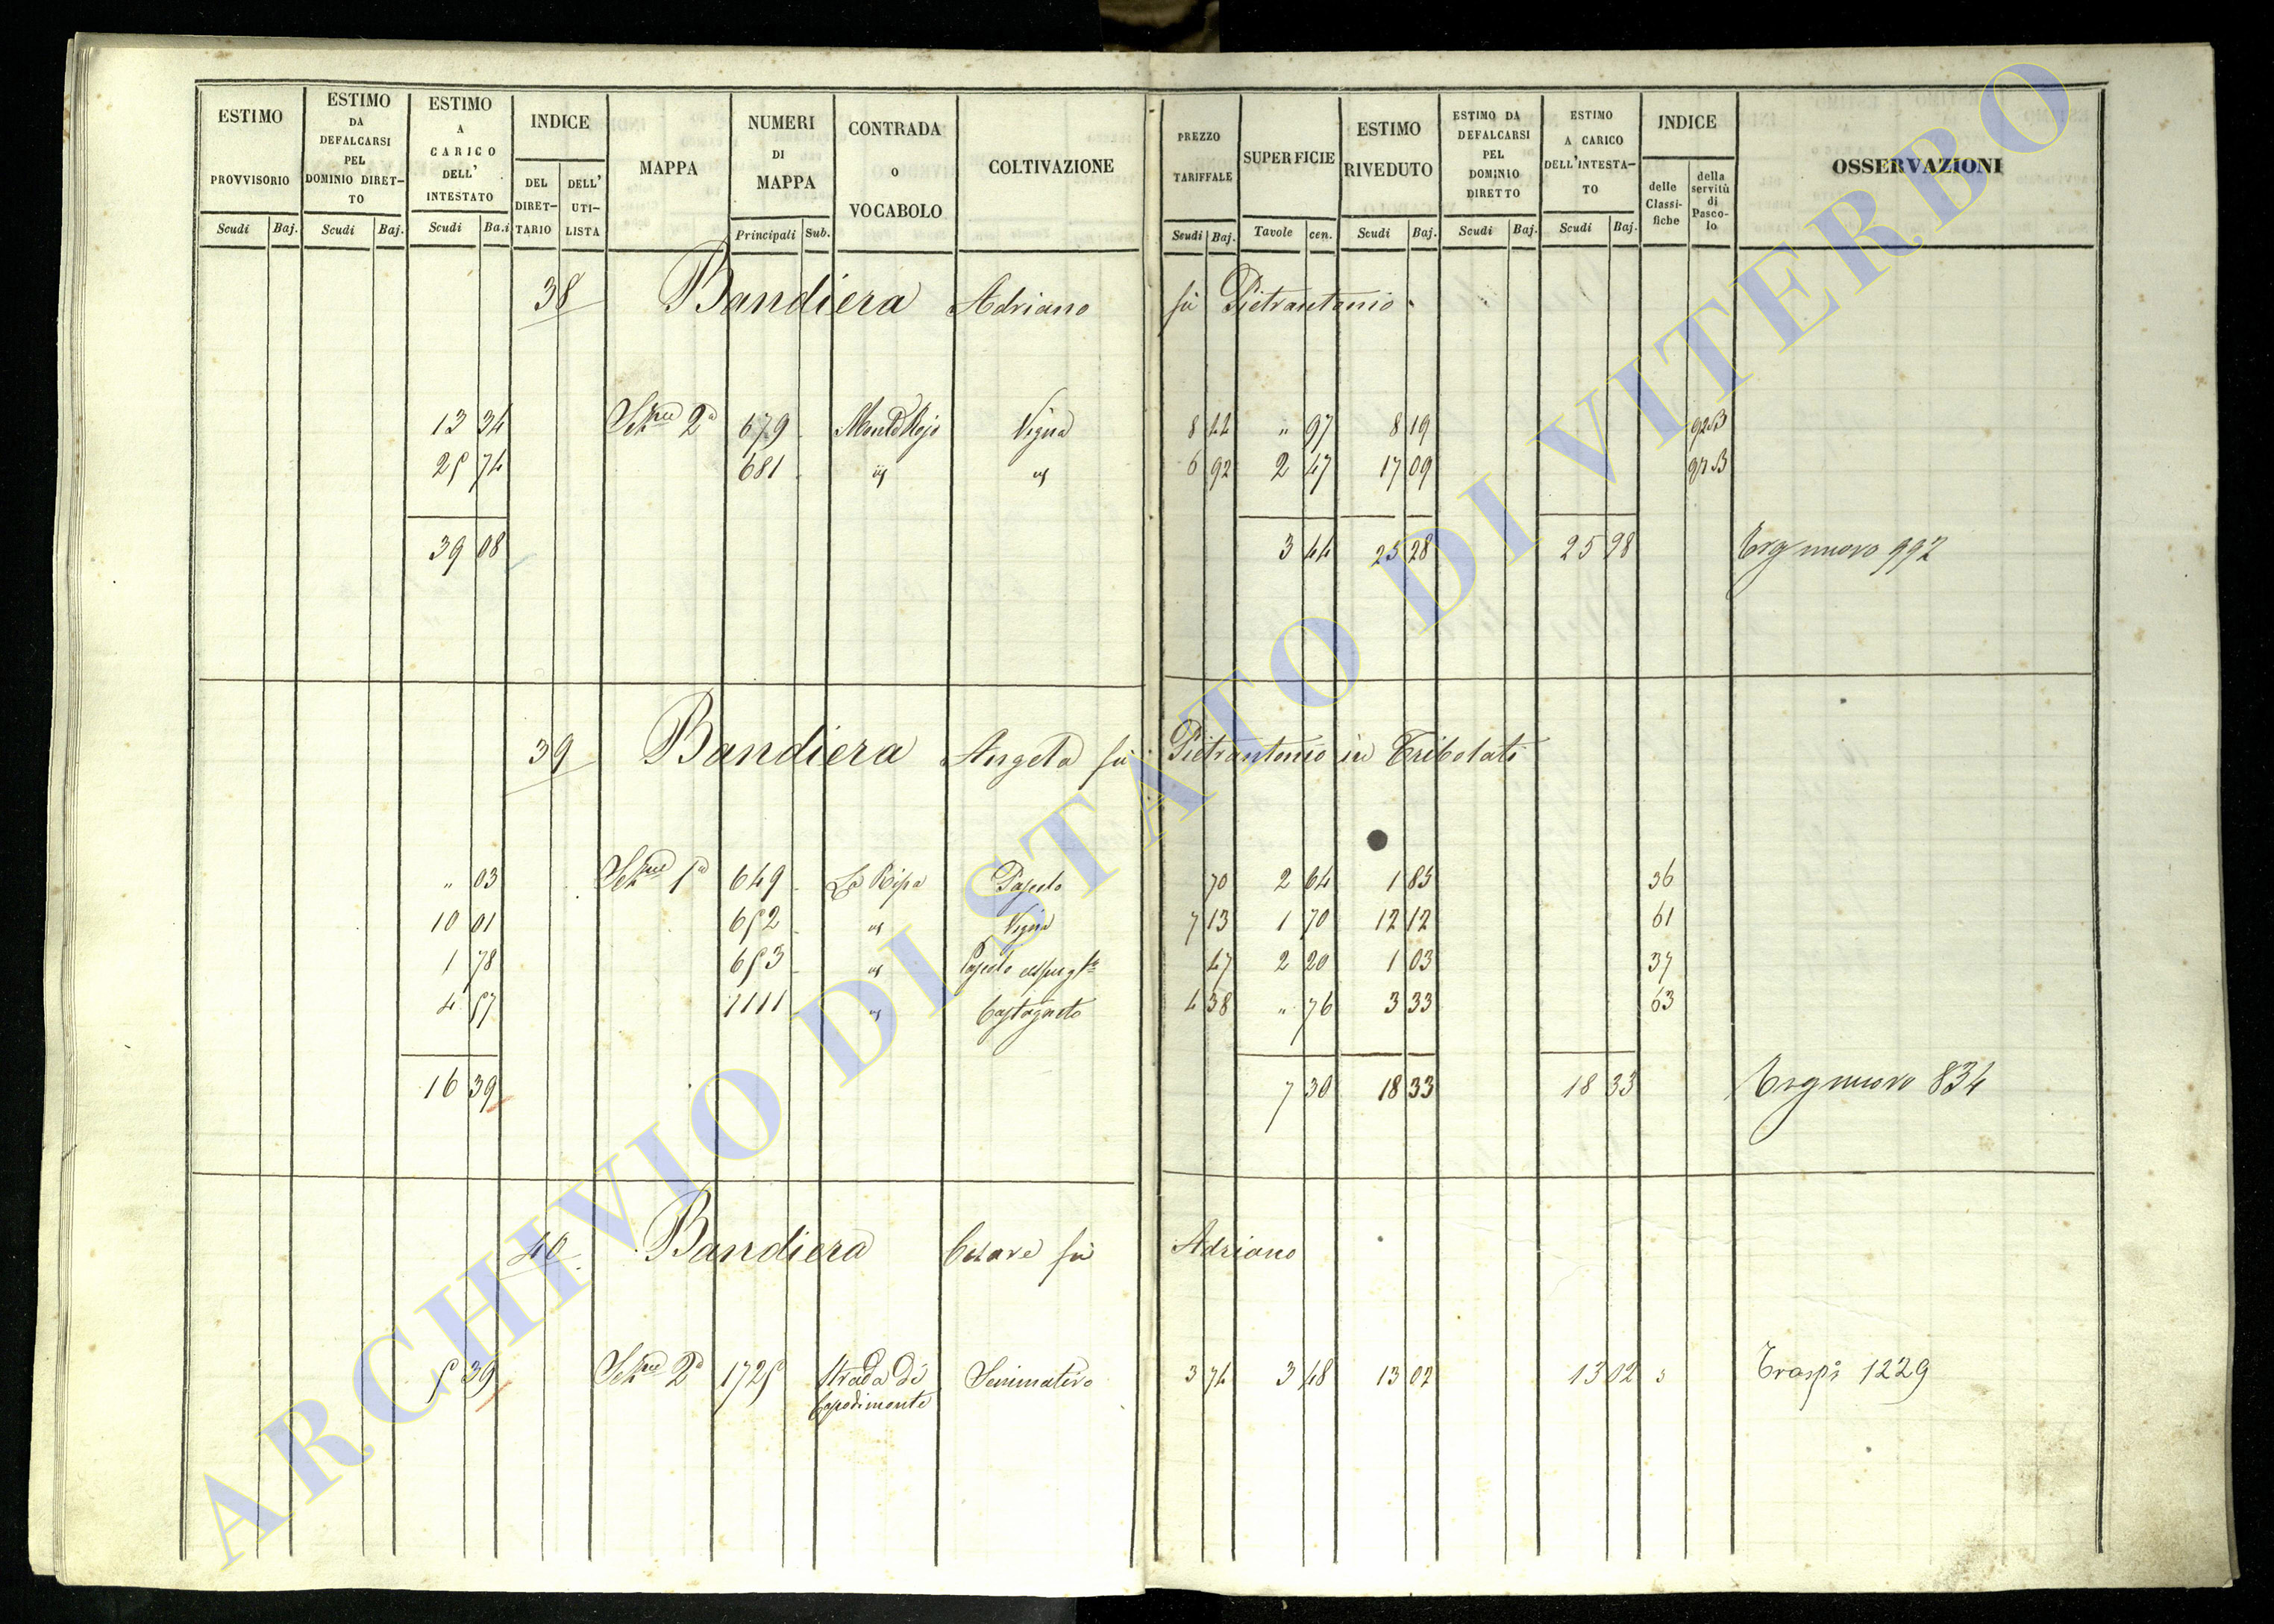 ESTIMO PROVVISORIO Scudi Baj.
ESTIMO DA DEFALCARSI PEL DOMINIO DIRETTO Scudi Baj.
ESTIMO A CARICO DELL' INTESTATO Scudi Ba.i
INDICE DEL DIRETTARIO DELL' UTILISTA
MAPPA
NUMERI DI MAPPA Principali Sub.
CONTRADA O VOCABOLO
COLTIVAZIONE
PREZZO TARIFFALE Scudi Baj.
SUPERFICIE Tavole cen.
ESTIMO RIVEDUTO Scudi Baj.
ESTIMO DA DEFALCARSI PEL DOMINIO DIRETTO Scudi Baj.
ESTIMO A CARICO DELL'INTESTATO Scudi Baj.
INDICE delle Classifiche della servitù di Pascolo
OSSERVAZIONI
38 Bandiera Adriano fù Pietrantonio
13 34 Sezne 2a 679 Vigna 8 44 " 97 8 19 92 B
25 74 681 " " 6 92 2 47 17 09 B
39 08 3 44 25 28 25 98 nuovo 992
39 Bandiera Angela fù Pietrantonio in Tribolati
" 03 Sezne 1a 649 La Ripa Pascolo 70 2 64 1 85 36
10 01 652 " Vigna 7 13 1 70 12 12 61
1 78 653 " Pascolo 47 2 20 1 03 37
4 57 1111 " Castagneto 4 38 " 76 3 33 63
16 39 7 30 18 33 18 33 nuovo 834
40 Bandiera Cesare fù Adriano
5 39 Sezne 2a 1725 Strada di Capodimonte Seminativo 3 74 3 48 13 02 13 02 5 1229
ARCHIVIO DI STATO DI VITERBO